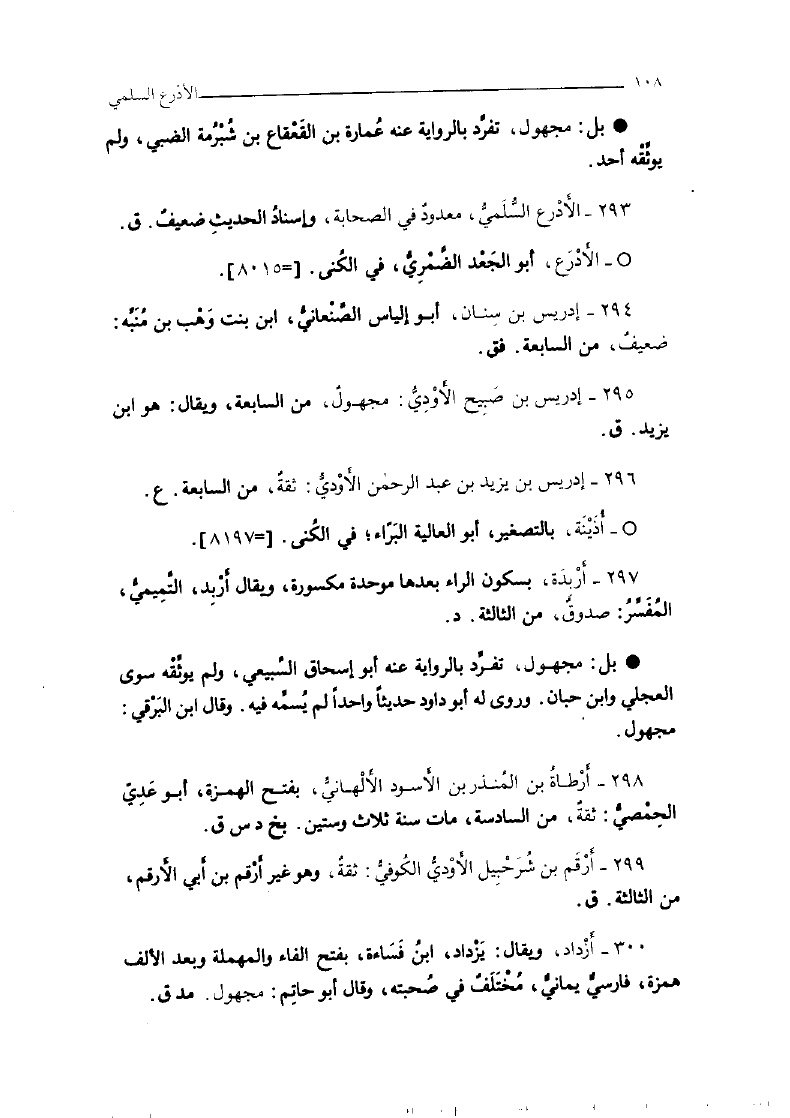 ١٠٨ الأذرع السلمي
● بل: مجهول، تفرَّد بالرواية عنه عُمارة بن القَعْقاع بن شُبْرُمة الضبي، ولم
يوثِّقْه أحد.
٢٩٣ ـ الأَدْرع السُّلَميُّ، معدودٌ في الصحابة، وإسنادُ الحديثِ ضعيفٌ. ق.
○ ـ الأَدْرَع، أبو الجَعْد الضَّمْريُّ، في الكُنى. [=٨٠١٥].
٢٩٤ ـ إدريس بن سِنـان، أبـو إلياس الصَّنْعانيُّ، ابن بنت وَهْب بن مُنَبِّه:
ضعيفٌ، من السابعة. فق.
٢٩٥ ـ إدريس بن صَبِيح الأَوْديُّ: مجهـولٌ، من السابعة، ويقال: هو ابن
يزيد. ق.
٢٩٦ ـ إدريس بن يزيد بن عبد الرحمٰن الأَوْديُّ: ثقةٌ، من السابعة. ع.
○ ـ أُذَيْنَة، بالتصغير، أبو العالية البَرَّاء؛ في الكُنى. [=٨١٩٧].
٢٩٧ ـ أَرْبِدَة، بسكون الراء بعدها موحدة مكسورة، ويقال أَرْبِد، التَّمِيميُّ،
المُفَسِّرُ: صدوقٌ، من الثالثة. د.
● بل: مجهـول، تفـرَّد بالرواية عنه أبو إسحاق السَّبيعي، ولم يوثِّقْه سوى
العجلي وابن حبان. وروى له أبو داود حديثاً واحداً لم يُسمِّه فيه. وقال ابن البَرْقي:
مجهول.
٢٩٨ ـ أَرْطـاةُ بن المُنـذر بن الأسـود الأَلْهـانيُّ، بفتـح الهمـزة، أبـو عَدِيّ
الحِمْصيُّ: ثقةٌ، من السادسة، مات سنة ثلاث وستين. بخ د س ق.
٢٩٩ ـ أَرْقَم بن شُرَحْبِيل الأَوْديُّ الكُوفيُّ: ثقةٌ، وهو غير أَرْقم بن أَبي الأَرقم،
من الثالثة. ق.
٣٠٠ ـ أَزْداد، ويقال: يَزْداد، ابنُ فَسَاءة، بفتح الفاء والمهملة وبعد الألف
همزة، فارسيٌّ يمانيٌّ، مُخْتَلَفٌ في صُحبته، وقال أبو حاتِم: مجهول. مد ق.